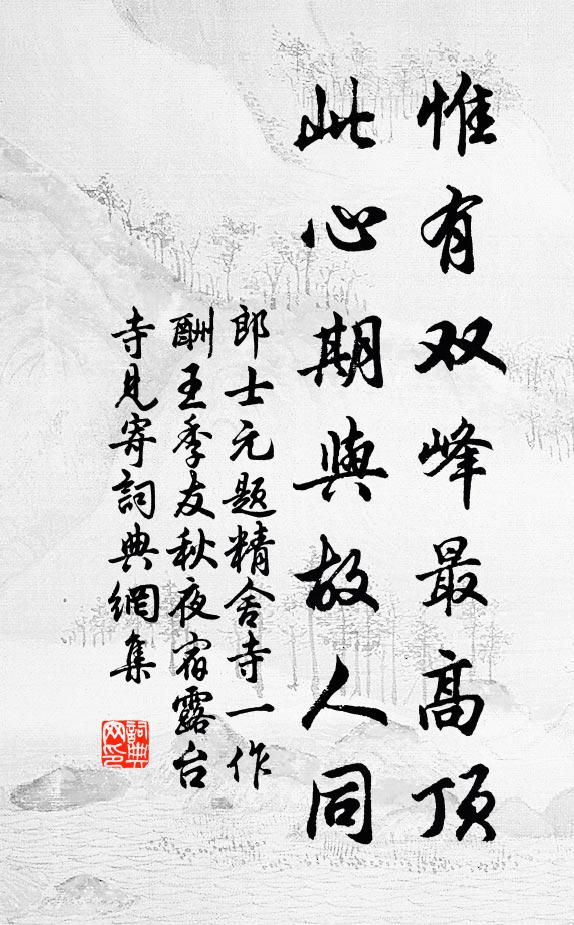 惟有双峰最高顶
此心期與故人同
郎士元题精舍寺一作
酬王季友秋夜宿露台
寺見寄詞典網集
詞典
网印